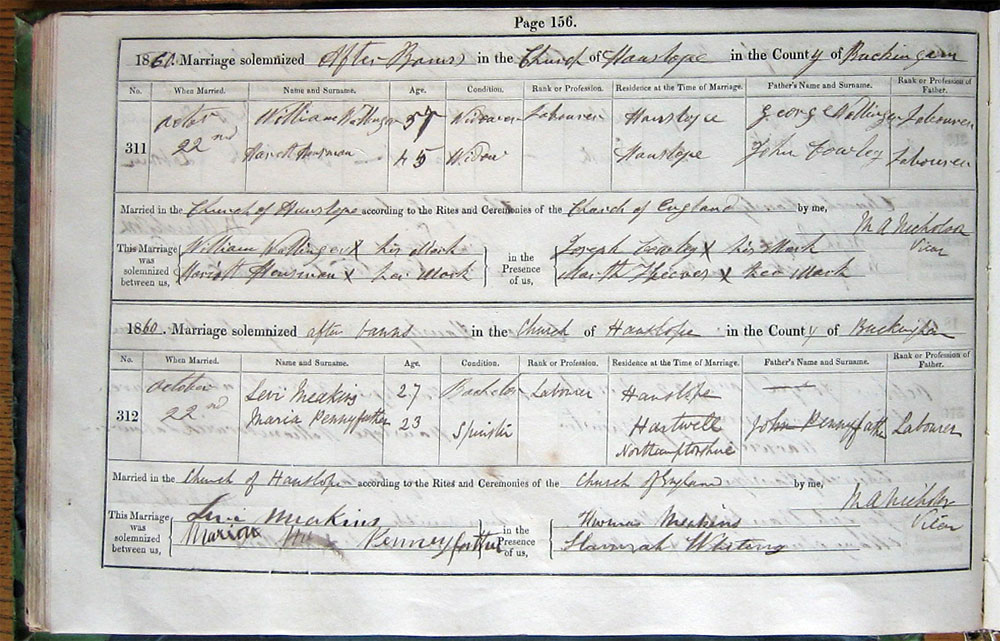 Page 156.
1860. Marriage solemnized After Banns in the Church of Hanslope in the County of Buckingam
No. When Married. Name and Surname. Age. Condition. Rank or Profession. Residence at the Time of Marriage. Father's Name and Surname. Rank or Profession of Father.
311 October 22nd William Wallinger 57 Widower Labourer Hanslope George Wallinger Labourer
Hariott Hensman 45 Widow Hanslope John Cowley Labourer
Married in the Church of Hanslope according to the Rites and Ceremonies of the Church of England by me,
M A Nicholson Vicar
This Marriage was solemnized between us,
William Wallinger X his Mark
Hariott Hensman X her Mark
in the Presence of us,
Joseph Cowley X his Mark
X her Mark
1860. Marriage solemnized after banns in the Church of Hanslope in the County of
No. When Married. Name and Surname. Age. Condition. Rank or Profession. Residence at the Time of Marriage. Father's Name and Surname. Rank or Profession of Father.
312 October 22nd Levi Meakins 27 Bachelor Labourer Hanslope
Maria Pennyfather 23 Spinster Hartwell Northamptonshire John Pennyfather Labourer
Married in the Church of Hanslope according to the Rites and Ceremonies of the Church of England by me,
M A Nicholson Vicar
This Marriage was solemnized between us,
Levi Meakins
Penneyfather
in the Presence of us,
Thomas Meakins
Hannah Whiting